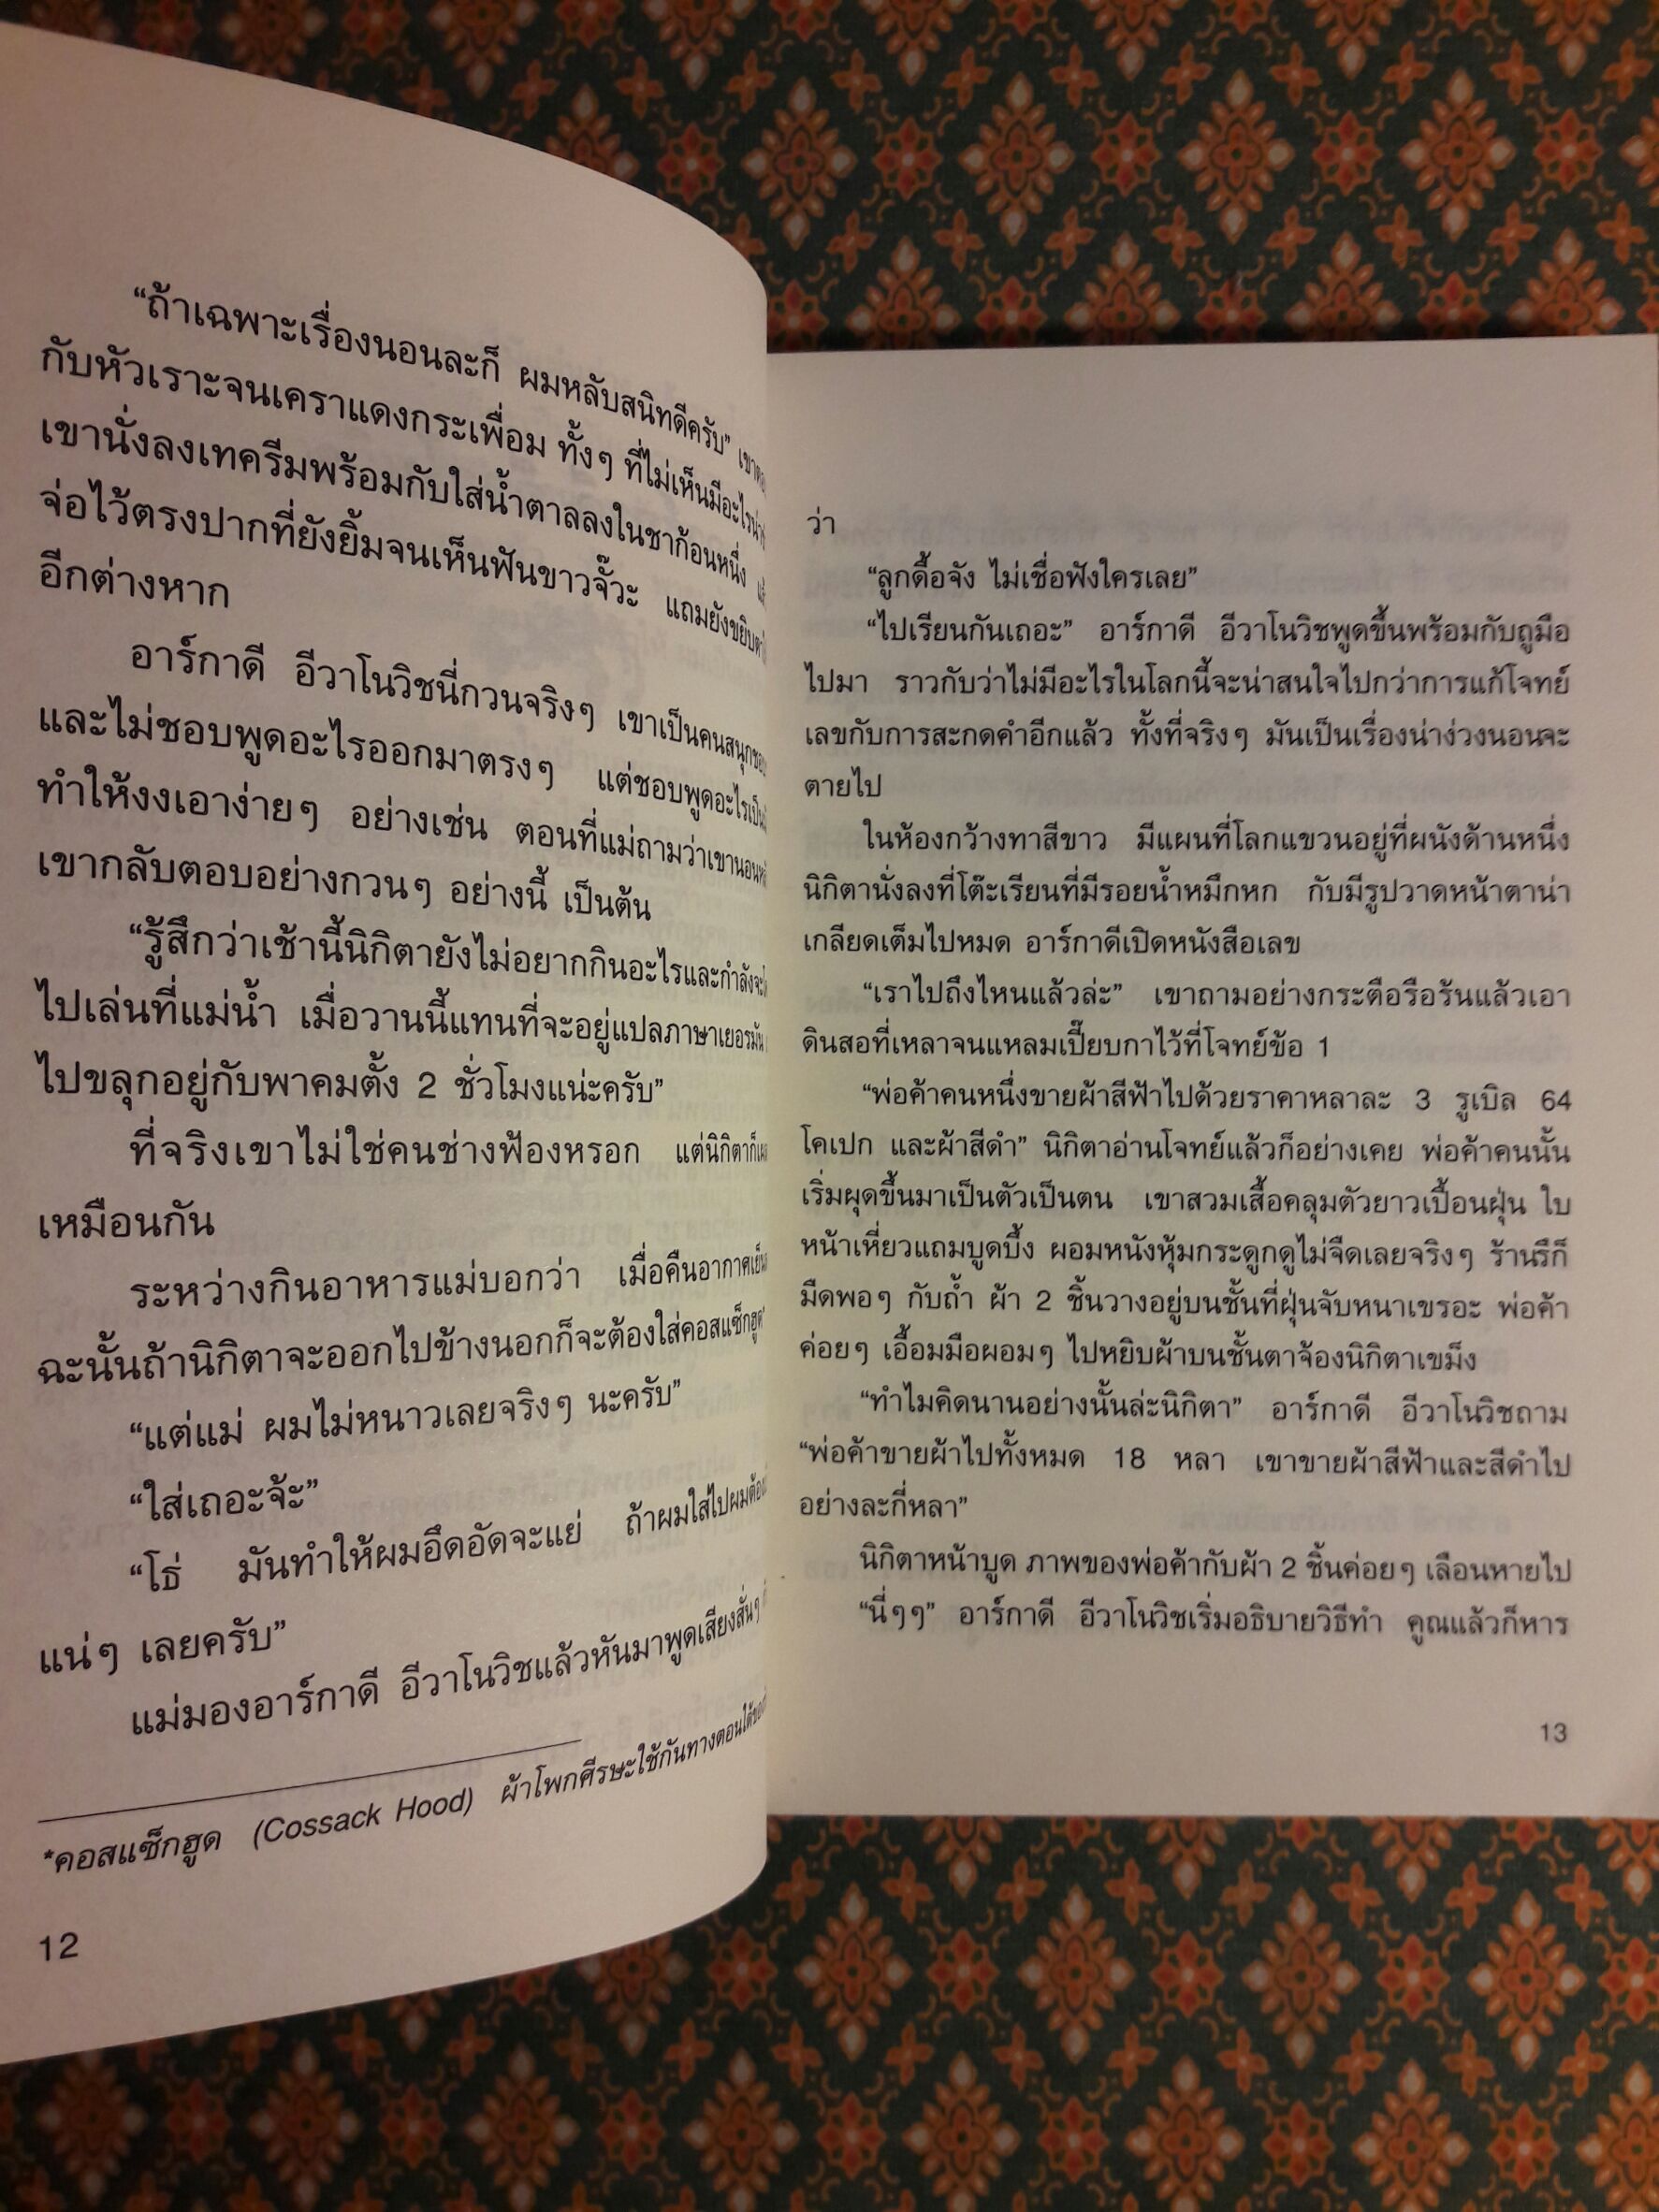 “ถ้าเฉพาะเรื่องนอนละก็ ผมหลับสนิทดีครับ”
กับหัวเราะจนเคราแดงกระเพื่อม ทั้งๆ ที่ไม่เห็นมีอะไร
เขานั่งลงเทครีมพร้อมกับใส่น้ำตาลลงในชาก้อนหนึ่ง
จ่อไว้ตรงปากที่ยังยิ้มจนเห็นฟันขาวจั๊วะ แถมยังขยิบ
อีกต่างหาก
อาร์กาดี อีวาโนวิชนี่กวนจริงๆ เขาเป็นคนสนุก
และไม่ชอบพูดอะไรออกมาตรงๆ แต่ชอบพูดอะไร
ทำให้งงเอาง่ายๆ อย่างเช่น ตอนที่แม่ถามว่าเขานอน
เขากลับตอบอย่างกวนๆ อย่างนี้ เป็นต้น
“รู้สึกว่าเช้านี้นิกิตายังไม่อยากกินอะไรและกำลัง
ไปเล่นที่แม่น้ำ เมื่อวานนี้แทนที่จะอยู่แปลภาษาเยอรมัน
ไปขลุกอยู่กับพาคมตั้ง 2 ชั่วโมงแน่ะครับ”
ที่จริงเขาไม่ใช่คนช่างฟ้องหรอก แต่นิกิตาก็
เหมือนกัน
ระหว่างกินอาหารแม่บอกว่า เมื่อคืนอากาศเย็น
ฉะนั้นถ้านิกิตาจะออกไปข้างนอกก็จะต้องใส่คอสแซ็กฮูด*
“แต่แม่ ผมไม่หนาวเลยจริงๆ นะครับ”
“ใส่เถอะจ้ะ”
“โธ่ มันทำให้ผมอึดอัดจะแย่ ถ้าผมใส่ไปผมต้อง
แน่ๆ เลยครับ”
แม่มองอาร์กาดี อีวาโนวิชแล้วหันมาพูดเสียงสั่นๆ
*คอสแซ็กฮูด (Cossack Hood) ผ้าโพกศีรษะใช้กันทางตอนใต้
12
ว่า
“ลูกดื้อจัง ไม่เชื่อฟังใครเลย”
“ไปเรียนกันเถอะ” อาร์กาดี อีวาโนวิชพูดขึ้นพร้อมกับถูมือ
ไปมา ราวกับว่าไม่มีอะไรในโลกนี้จะน่าสนใจไปกว่าการแก้โจทย์
เลขกับการสะกดคำอีกแล้ว ทั้งที่จริงๆ มันเป็นเรื่องน่าง่วงนอนจะ
ตายไป
ในห้องกว้างทาสีขาว มีแผนที่โลกแขวนอยู่ที่ผนังด้านหนึ่ง
นิกิตานั่งลงที่โต๊ะเรียนที่มีรอยน้ำหมึกหก กับมีรูปวาดหน้าตาน่า
เกลียดเต็มไปหมด อาร์กาดีเปิดหนังสือเลข
“เราไปถึงไหนแล้วล่ะ” เขาถามอย่างกระตือรือรันแล้วเอา
ดินสอที่เหลาจนแหลมเปี๊ยบกาไว้ที่โจทย์ข้อ 1
“พ่อค้าคนหนึ่งขายผ้าสีฟ้าไปด้วยราคาหลาละ 3 รูเบิล 64
โคเปก และผ้าสีดำ” นิกิตาอ่านโจทย์แล้วก็อย่างเคย พ่อค้าคนนั้น
เริ่มผุดขึ้นมาเป็นตัวเป็นตน เขาสวมเสื้อคลุมตัวยาวเปื้อนฝุ่น ใบ
หน้าเหี่ยวแถมบูดบึ้ง ผอมหนังหุ้มกระดูกดูไม่จืดเลยจริงๆ ร้านรึก็
มืดพอๆ กับถ้ำ ผ้า 2 ชิ้นวางอยู่บนชั้นที่ฝุ่นจับหนาเขรอะ พ่อค้า
ค่อยๆ เอื้อมมือผอมๆ ไปหยิบผ้าบนชั้นตาจ้องนิกิตาเขม็ง
“ทำไมคิดนานอย่างนั้นล่ะนิกิตา” อาร์กาดี อีวาโนวิชถาม
“พ่อค้าขายผ้าไปทั้งหมด 18 หลา เขาขายผ้าสีฟ้าและสีดำไป
อย่างละกี่หลา”
นิกิตาหน้าบูด ภาพของพ่อค้ากับผ้า 2 ชิ้นค่อยๆ เลือนหายไป
“นี่ๆๆ” อาร์กาดี อีวาโนวิชเริ่มอธิบายวิธีทำ คูณแล้วก็หาร
13